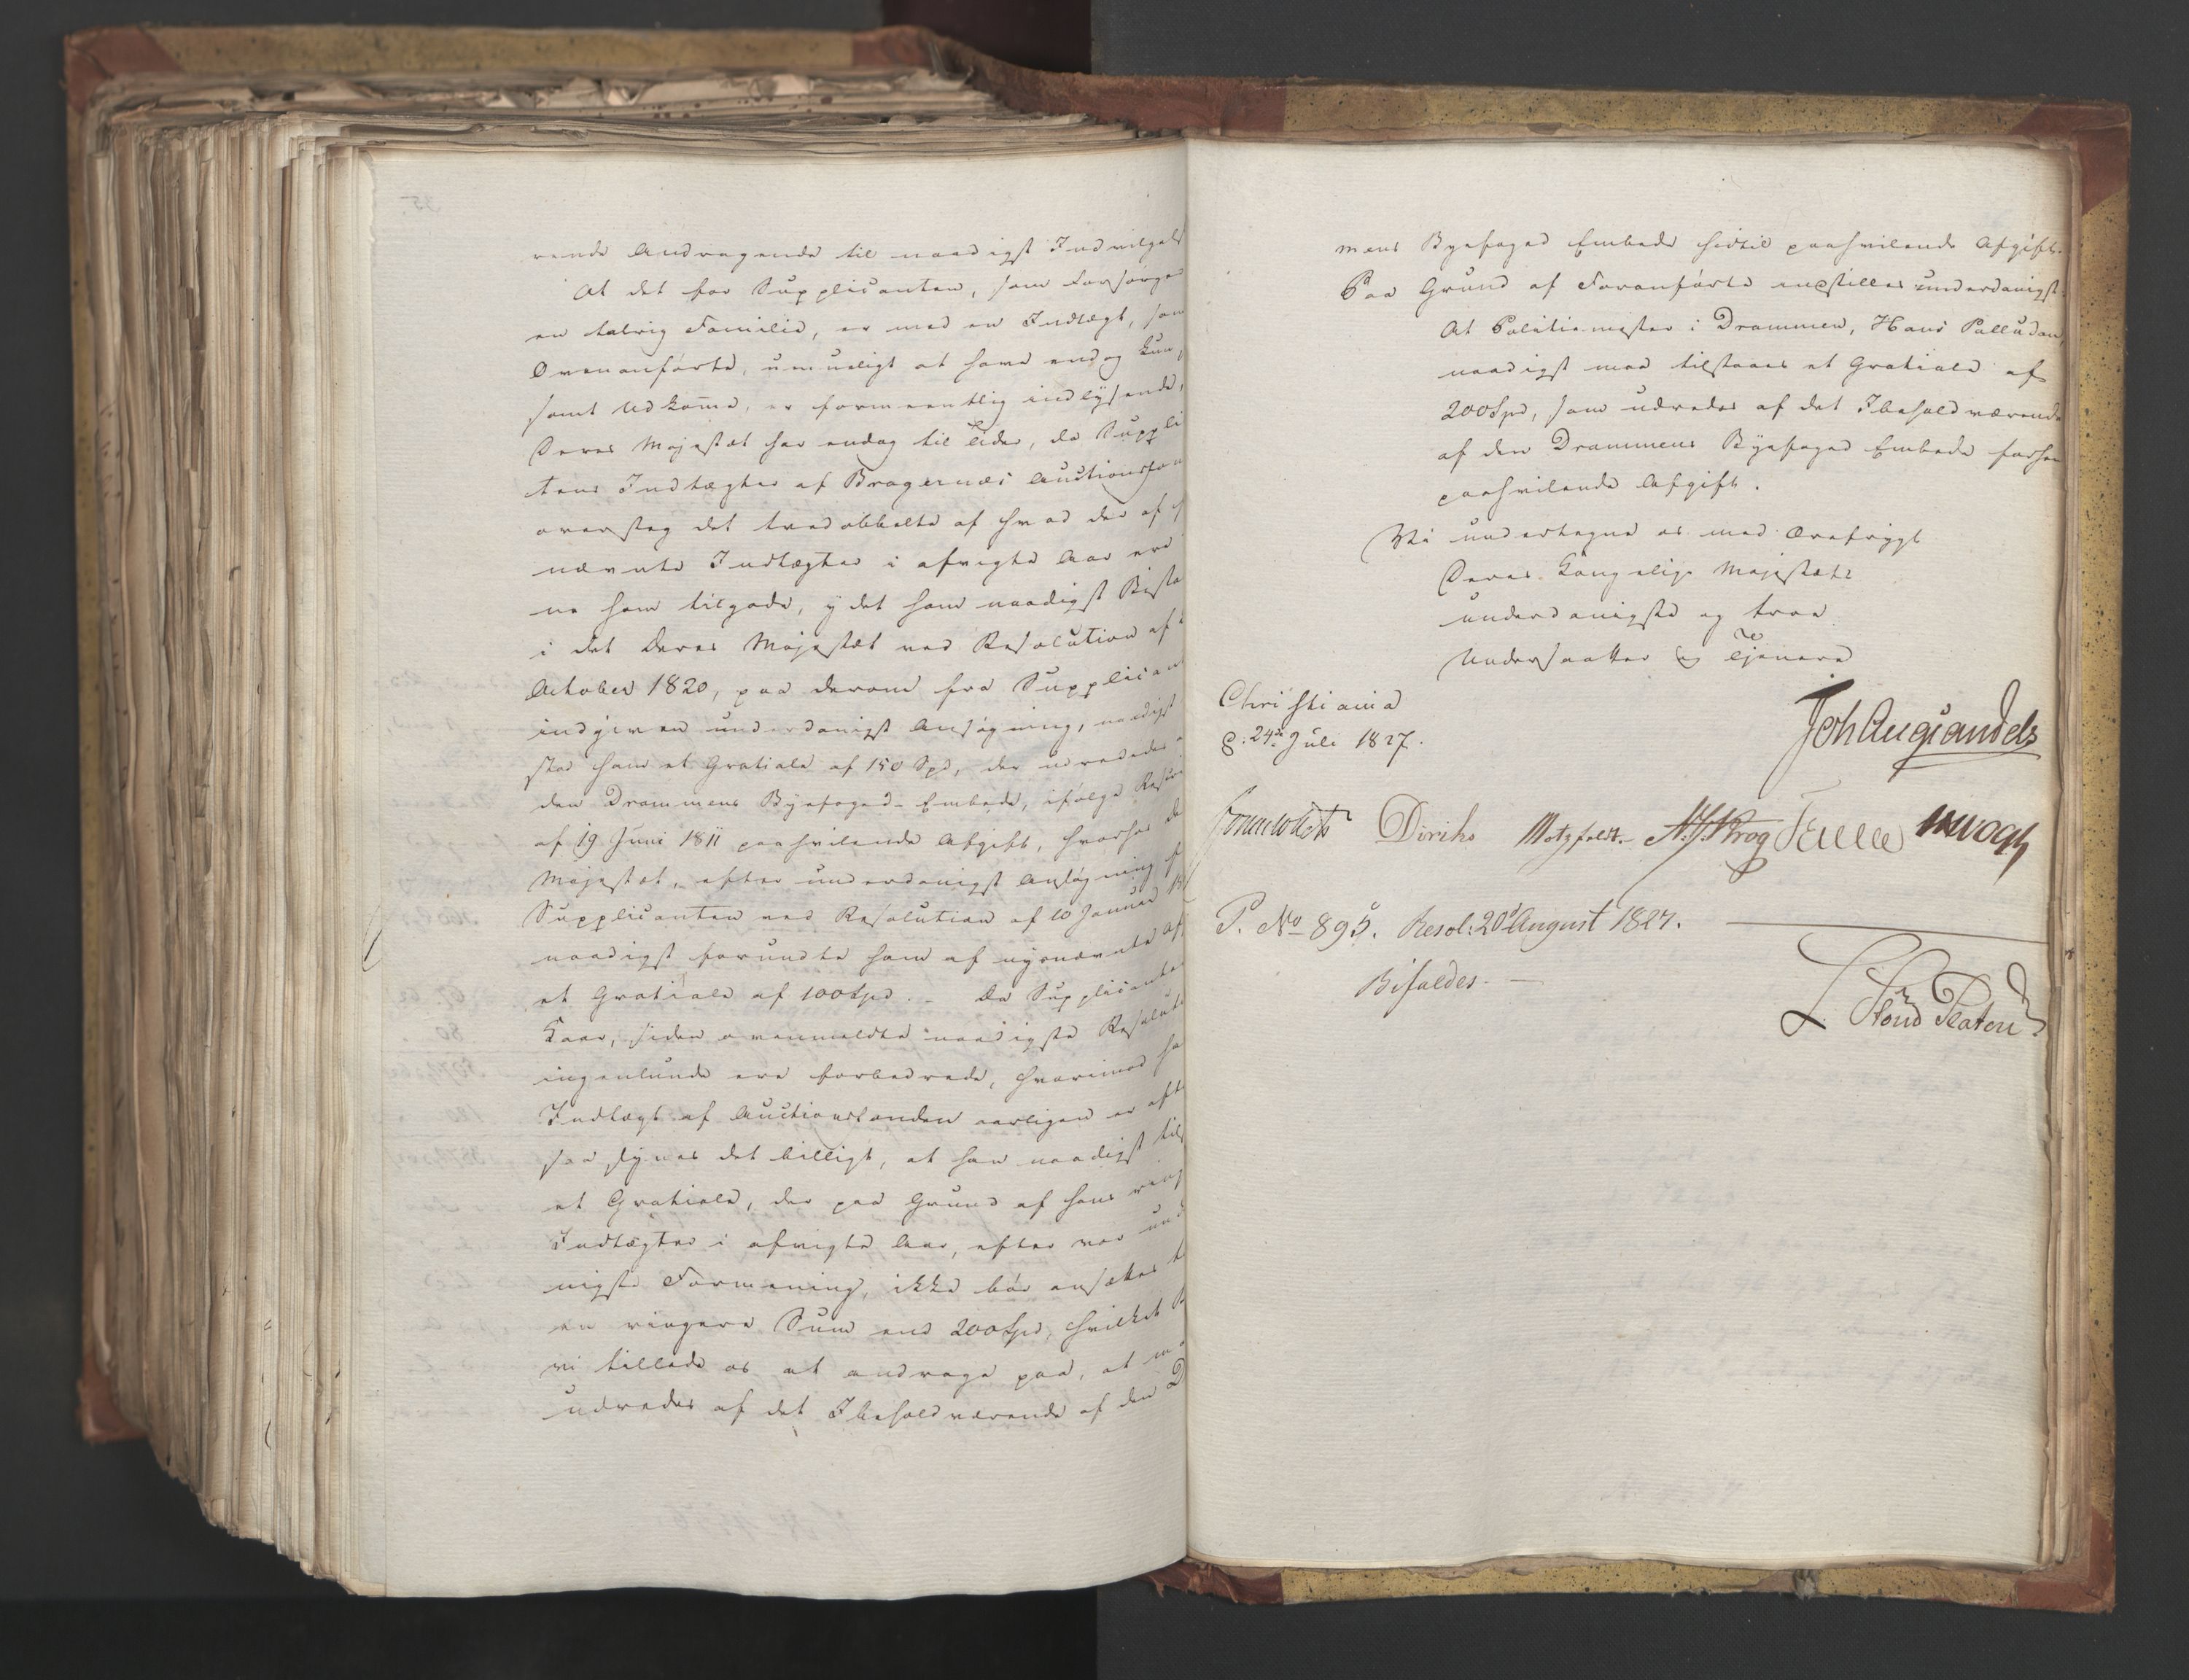 rende Andragende til naadigst Indvilgels
At det for Supplicanten, som Forsørger
en talrig Familie, er med en Indtægt, som
Ovenanførte, umueligt at have endog kun
somt Udkomme, er formeentlig indlysende,
Deres Majestæt har endog til Tider, da Suppli
tens Indtægter af Bragernæs Auctionsfor
oversteg det tredobbelte af hvad der af
nævnte Indtægter i afvigte Aar ere
ne ham tilgode, ydet ham naadigst Bista
i det Deres Majestæt ved Resolution af
October 1820, paa derom fra Supplican
indgiven underdanigst Ansøgning, naadigst
stod ham et Gratiale af 150 Spd, der udrededes
den Drammens Byefoged-Embede, ifølge Rescri
af 19 Juni 1811 paahvilende Afgift, hvorhos De
Majestæt, efter underdanigst Ansøgning af
Supplicanten ved Resolution af 10 Januar 18
naadigst forundte ham af nysnævnte Af
et Gratiale af 100 Spd. - Da Supplicantens
Kaar, siden ovenmeldte naadigste Resoluti
ingenlunde ere forbedrede, hvorimod ha
Indtægt af Auctionsfonden aarligen er aft
saa synes det billigt, at han naadigst tils
et Gratiale, der paa Grund af hans ring
Indtægter i afvigte Aar, efter vor und
nigste Formening, ikke bør ansættes t
en ringere Sum end 200 Spd, hvilket
vi tillade os at andrage paa, at m
udredes af det Ibeholdværende af den D
mens Byefoged Embede hidtil paahvilende Afgift.
Paa Grund af Foranførte indstilles underdanigst:
At Politiemester i Drammen, Hans Palludan,
naadigst maa tilstaaes et Gratiale af
200 Spd, som udredes af det Ibeholdværende
af den Drammens Byefoged Embede forhen
paahvilende Afgift.
Vi undertegne os med Ærefrygt
Deres Kongelige Majestæts
underdanigste og troe
Undersaatter og Tjenere
Christiania
d: 24de Juli 1827.
Joh Aug Sandels
Sommerhielm Diriks Motzfeldt. A. J. Krog Fasting JHVogt
P. No 895. Resol: 20d August 1827.
Bifaldes. -
L. Frond Platen